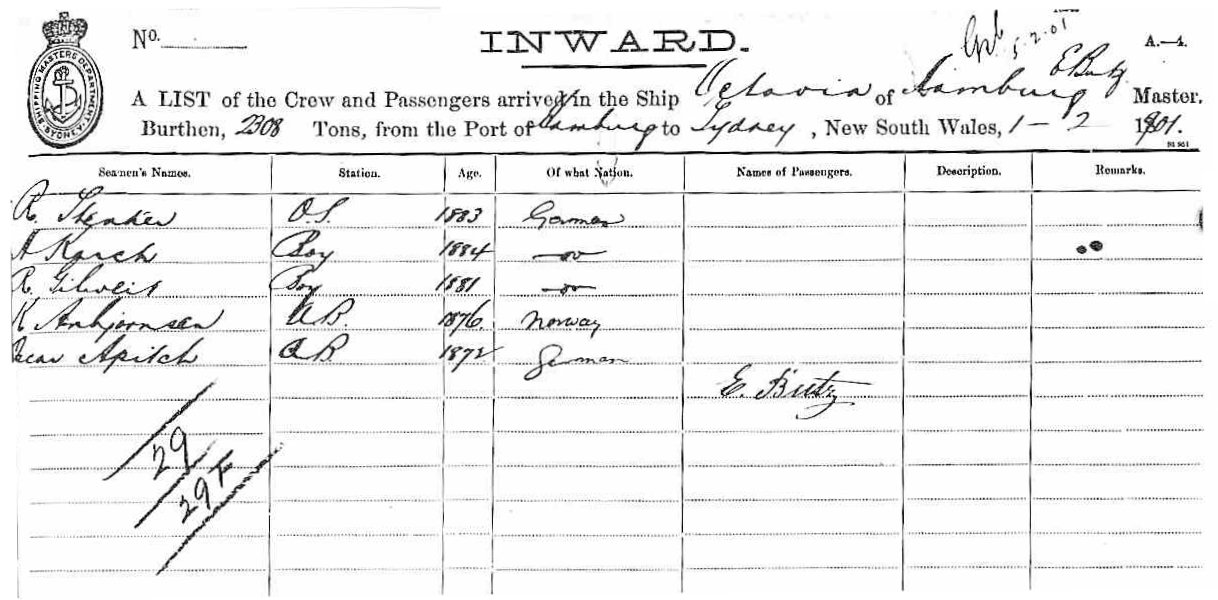 No.
INWARD.
5.2.01
A.—4.
E Butz
A LIST of the Crew and Passengers arrived in the Ship Octavia of Hamburg Master,
Burthen, 2308 Tons, from the Port of Hamburg to Sydney, New South Wales, 1 - 2 1901.
SHIPPING MASTERS DEPARTMENT SYDNEY
Seamen's Names. Station. Age. Of what Nation. Names of Passengers. Description. Remarks.
R. O.S. 1883 German
A Karsch Boy 1884 —do—
R. Boy 1881 —do—
K Ambjornsen A.B. 1876. Norway
Oscar Apitch A B 1872 German
E. Butz
29
29 F